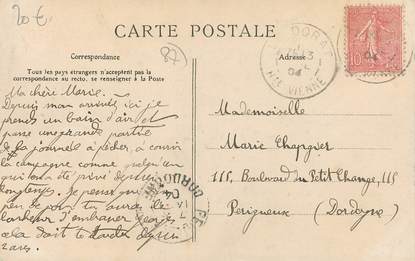 20 €
87
CARTE POSTALE
Correspondance
Adresse
Tous les pays étrangers n'acceptent pas la
correspondance au recto, se renseigner à la Poste
LE DORAT
04
HTE VIENNE
10
Ma chère Marie.
Depuis mon arrivée ici je
prends un bain d'air et
passe une grande partie
de la journée à pêcher, à courir
la campagne comme quelqu'un
qui en a été privé depuis
longtemps. Je pense que
peu de jours tu auras le
bonheur d'embrasser
cela doit te tarder depuis
2 ans.
DORDOGNE
Mademoiselle
Marie Chapgier
115, Boulevard du Petit Change, 115
Périgueux (Dordogne)